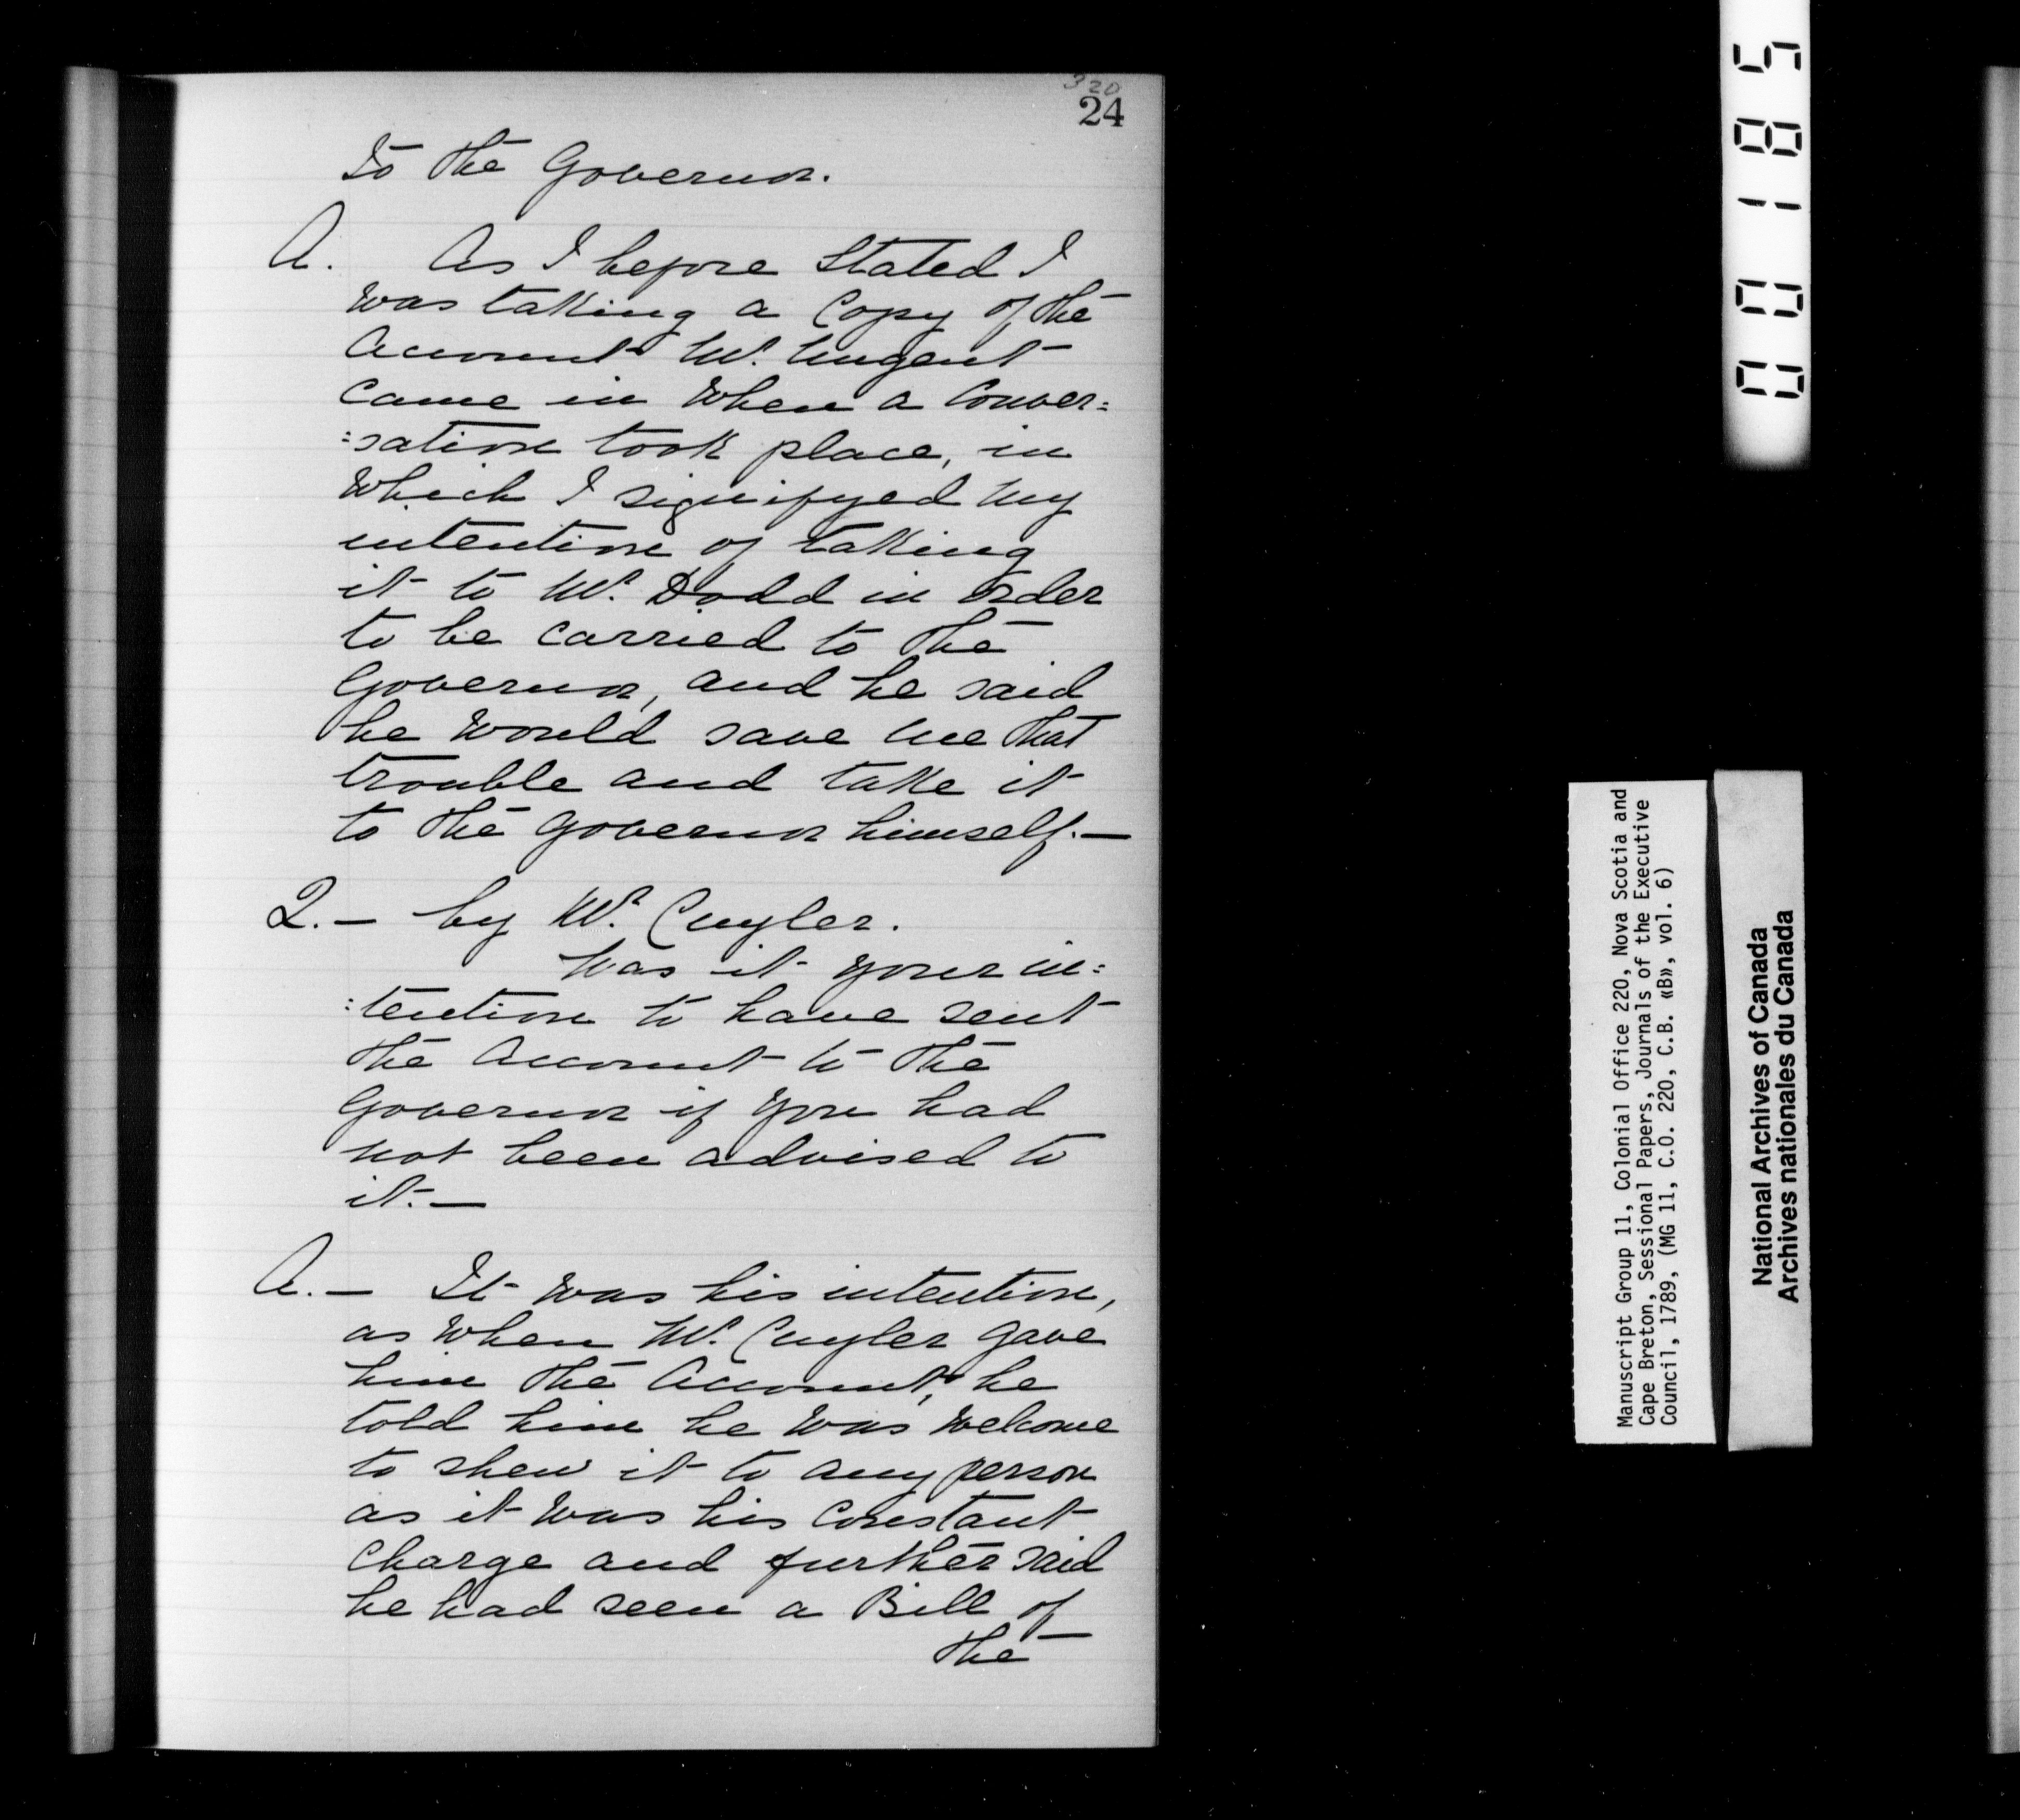 320
24
to the Governor.
A. As I before Stated I
was taking a Copy of the
Account Mr. Nugent
Came in when a Conver=
=sation took place, in
which I signifyed my
intention of taking
it to Mr. Dodd in order
to be carried to the
Governor, and he said
he would save me that
trouble and take it
to the Governor himself.—
Q.— by Mr. Cuyler.
Was it your in=
=tention to have sent
the Account to the
Governor if you had
not been advised to
it.—
A.— It was his intention,
as when Mr. Cuyler gave
him the Account, he
told him he was welcome
to shew it to any person
as it was his Constant
Charge and further said
he had seen a Bill of
the
000185
Manuscript Group 11, Colonial Office 220, Nova Scotia and
Cape Breton, Sessional Papers, Journals of the Executive
Council, 1789, (MG 11, C.O. 220, C.B. «B», vol. 6)
National Archives of Canada
Archives nationales du Canada